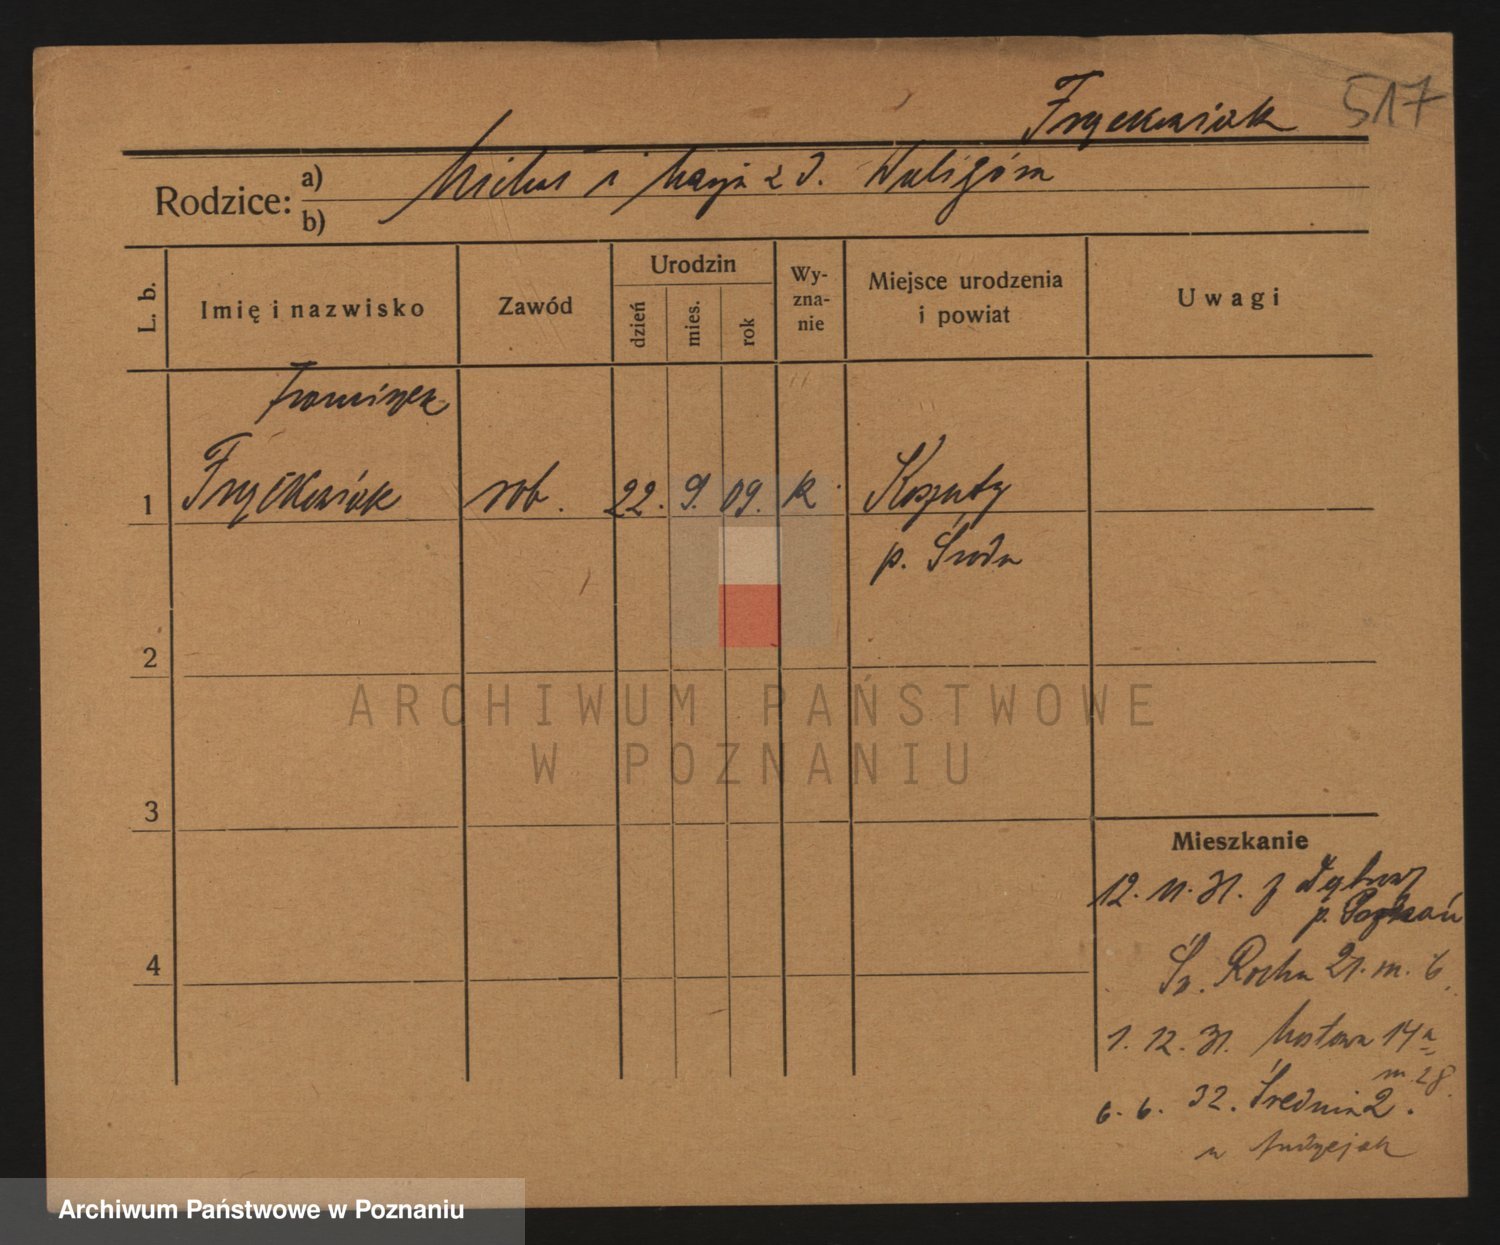 517
Rodzice:
a)
b)
i Marja z d. Waligóra
L. b.
Imię i nazwisko
Zawód
Urodzin
dzień
mies.
rok
Wy-
zna-
nie
Miejsce urodzenia
i powiat
Uwagi
Franciszek
1
rob. 22. 9. 09. k. Koszuty
p. Środa
2
3
4
Mieszkanie
12. 11. 31. z
p. Poznań
Św. Rocha 21. m. 6
1. 12. 31. Mostowa 14a
m 28.
6. 6. 32. Średnia 2.
u Andrzejak
ARCHIWUM PAŃSTWOWE
W POZNANIU
Archiwum Państwowe w Poznaniu